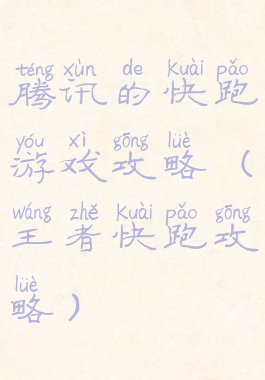 téng xùn de kuài pǎo
腾讯的快跑
yóu xì gōng lüè
游戏攻略（
wáng zhě kuài pǎo gōng
王者快跑攻
lüè
略）